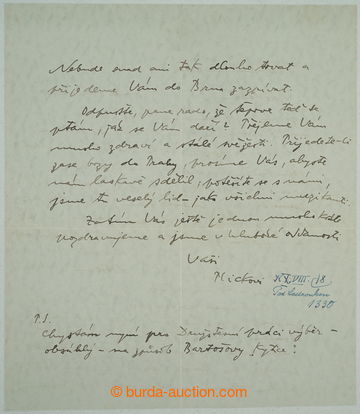 Nebude snad ani tak dlouho trvat a
přijedeme Vám do Brna zazpívat.
Odpusťte, pane rado, že teprve teď se
ptám, jak se Vám daří? Přejeme Vám
mnoho zdraví a stálé svěžesti. Přijedete-li
zase brzy do Prahy, prosíme Vás, abyste
nám laskavě sdělil, potěšíte se s námi,
jsme tu veselý lid jako všichni muzikanti.
Zatím Vás ještě jednou mnohokrát
pozdravujeme a jsme v hluboké oddanosti
Vaši
Plickovi
Pod Ladronkou
1330
P.S.
Chystám nyní pro Družstevní práci výběr -
obsáhlý - na způsob Bartošovy Kytice!
© burda-auction.com